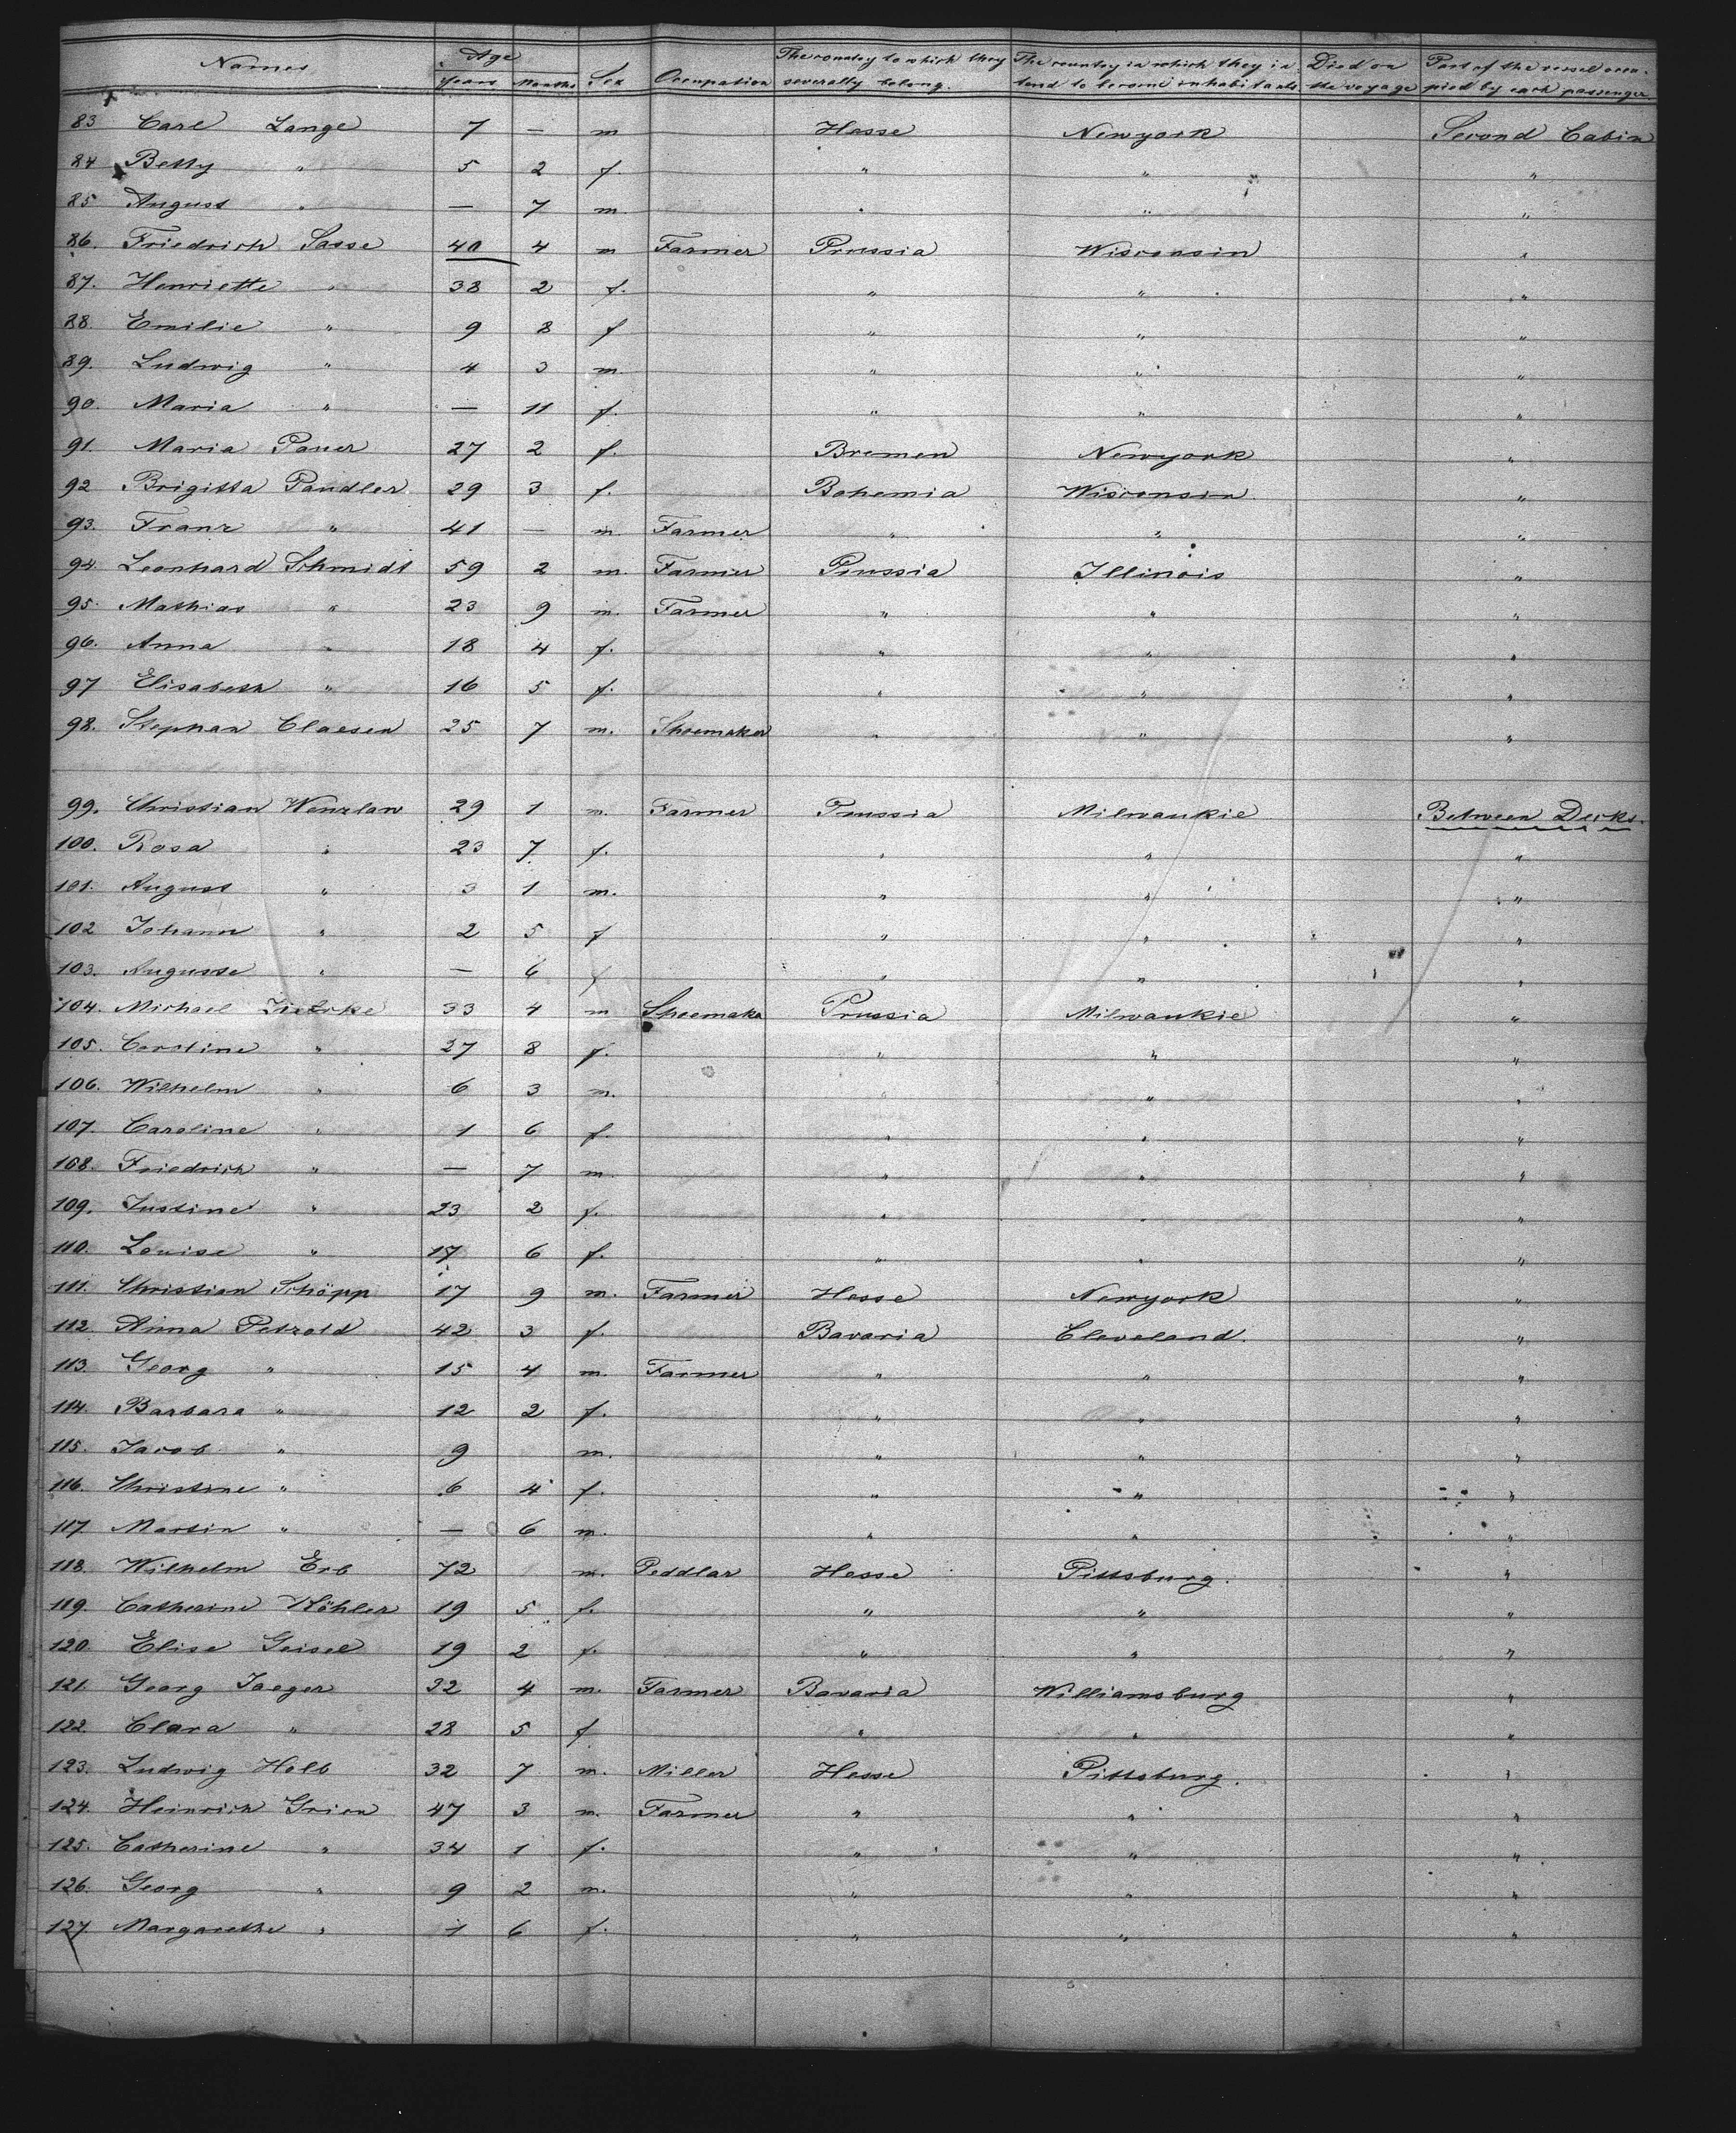 Names Age Years Months Sex Occupation The country to which they severally belong. The country in which they intend to become inhabitants Died on the voyage Part of the vessel occupied by each passenger.
83 Carl Lange 7 — m Hesse Newyork Second Cabin
84 Betty " 5 2 f. " " "
85 August " — 7 m. " " "
86. Friedrich Sasse 40 4 m Farmer Prussia Wisconsin "
87. Henriette " 38 2 f. " " "
88. Emilie " 9 8 f " " "
89. Ludwig " 4 3 m. " " "
90. Maria " — 11 f. " " "
91. Maria Pauer 27 2 f. Bremen Newyork "
92 Brigitta Pandler 29 3 f. Bohemia Wisconsin "
93. Franz " 41 — m. Farmer " " "
94. Leonhard Schmidt 59 2 m. Farmer Prussia Illinois "
95. Mathias " 23 9 m. Farmer " " "
96. Anna " 18 4 f. " " "
97 Elisabeth " 16 5 f. " " "
98. Stephan Claesen 25 7 m. Shoemaker " " "
99. Christian Wenzlaw 29 1 m. Farmer Prussia Milwaukie Between Decks.
100. Rosa " 23 7 f. " " "
101. August " 3 1 m. " " "
102 Johann " 2 5 f " " "
103. Auguste " — 6 f " " "
104. Michael 33 4 m Shoemaker Prussia Milwaukie "
105. Caroline " 27 8 f. " " "
106. Wilhelm " 6 3 m. " " "
107. Caroline " 1 6 f. " " "
108. Friedrich " — 7 m. " " "
109. Justine " 23 2 f. " " "
110. Louise " 17 6 f. " " "
111. Christian Schöpp 17 9 m. Farmer Hesse Newyork "
112 Anna Petzold 42 3 f. Bavaria Cleveland. "
113. Georg " 15 4 m. Farmer " " "
114. Barbara " 12 2 f. " " "
115. Jacob " 9 m. " " "
116. Christine " 6 4 f. " " "
117 Martin " — 6 m. " " "
118. Wilhelm Erb 72 m. Peddlar Hesse Pittsburg. "
119. Catherine Köhler 19 5 f. " " "
120. Elise Geisel 19 2 f. " " "
121. Georg Jaeger 32 4 m. Farmer Bavaria Williamsburg "
122 Clara " 28 5 f " " "
123. Ludwig Holb 32 7 m. Miller Hesse Pittsburg. "
124. Heinrich 47 3 m. Farmer " " "
125. Catherine " 34 1 f. " " "
126. Georg " 9 2 m. " " "
127. Margarethe " 1 6 f. " " "